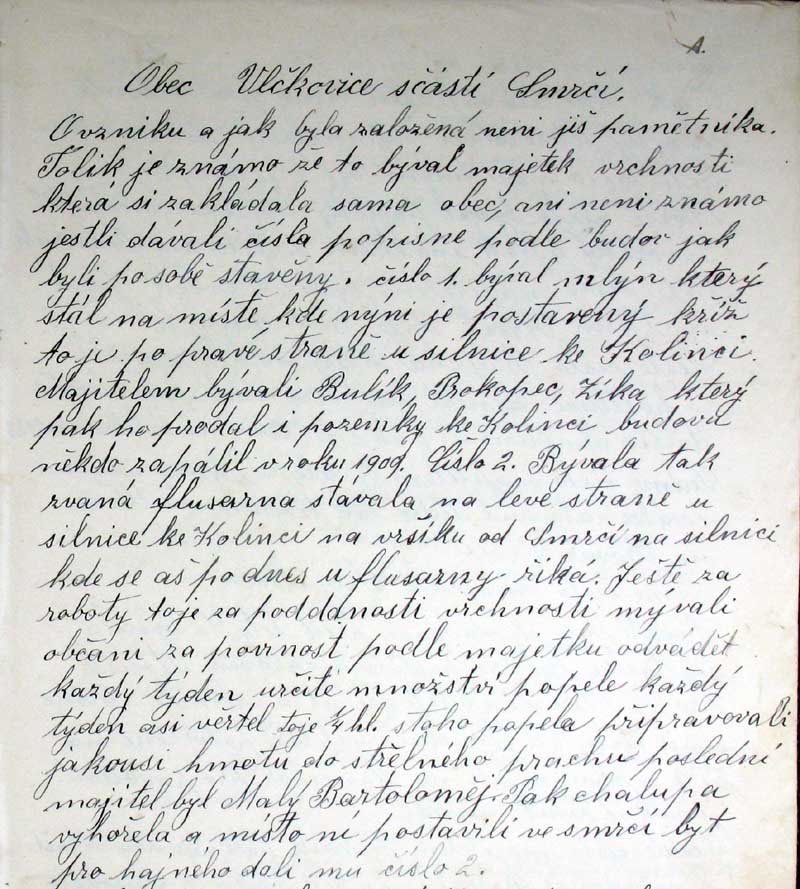 A.
Obec Vlčkovice sčástí Smrčí.
O vzniku a jak byla založená neni jiš pamětnika.
Tolik je známo že to býval majetek vrchnosti
která si zakládala sama obec, ani neni známo
jestli dávali čísla popisne podle budov jak
byli po sobě stavěny. číslo 1. býval mlýn který
stál na místě kde nýni je postavený kříž
to je po pravé straně u silnice ke Kolinci.
Majitelem bývali Bulík, Prokopec, Zíka který
pak ho prodal i pozemky ke Kolinci budovu
někdo zapálil v roku 1909. Číslo 2. Bývala tak
zvaná flusarna stávala na levé straně u
silnice ke Kolinci na vršíku od Smrčí na silnici
kde se aš po dnes u flusarny řiká. Ještě za
roboty toje za poddanosti vrchnosti mývali
občani za povinost podle majetku odvádět
každý týden určité množství popele každý
týden asi věrtel toje 1/4 hl. stoho popela připravovali
jakousi hmotu do střelného prachu poslední
majitel byl Malý Bartoloměj. Pak chalupa
vyhořela a místo ní postavili ve smrčí byt
pro hajného dali mu číslo 2.